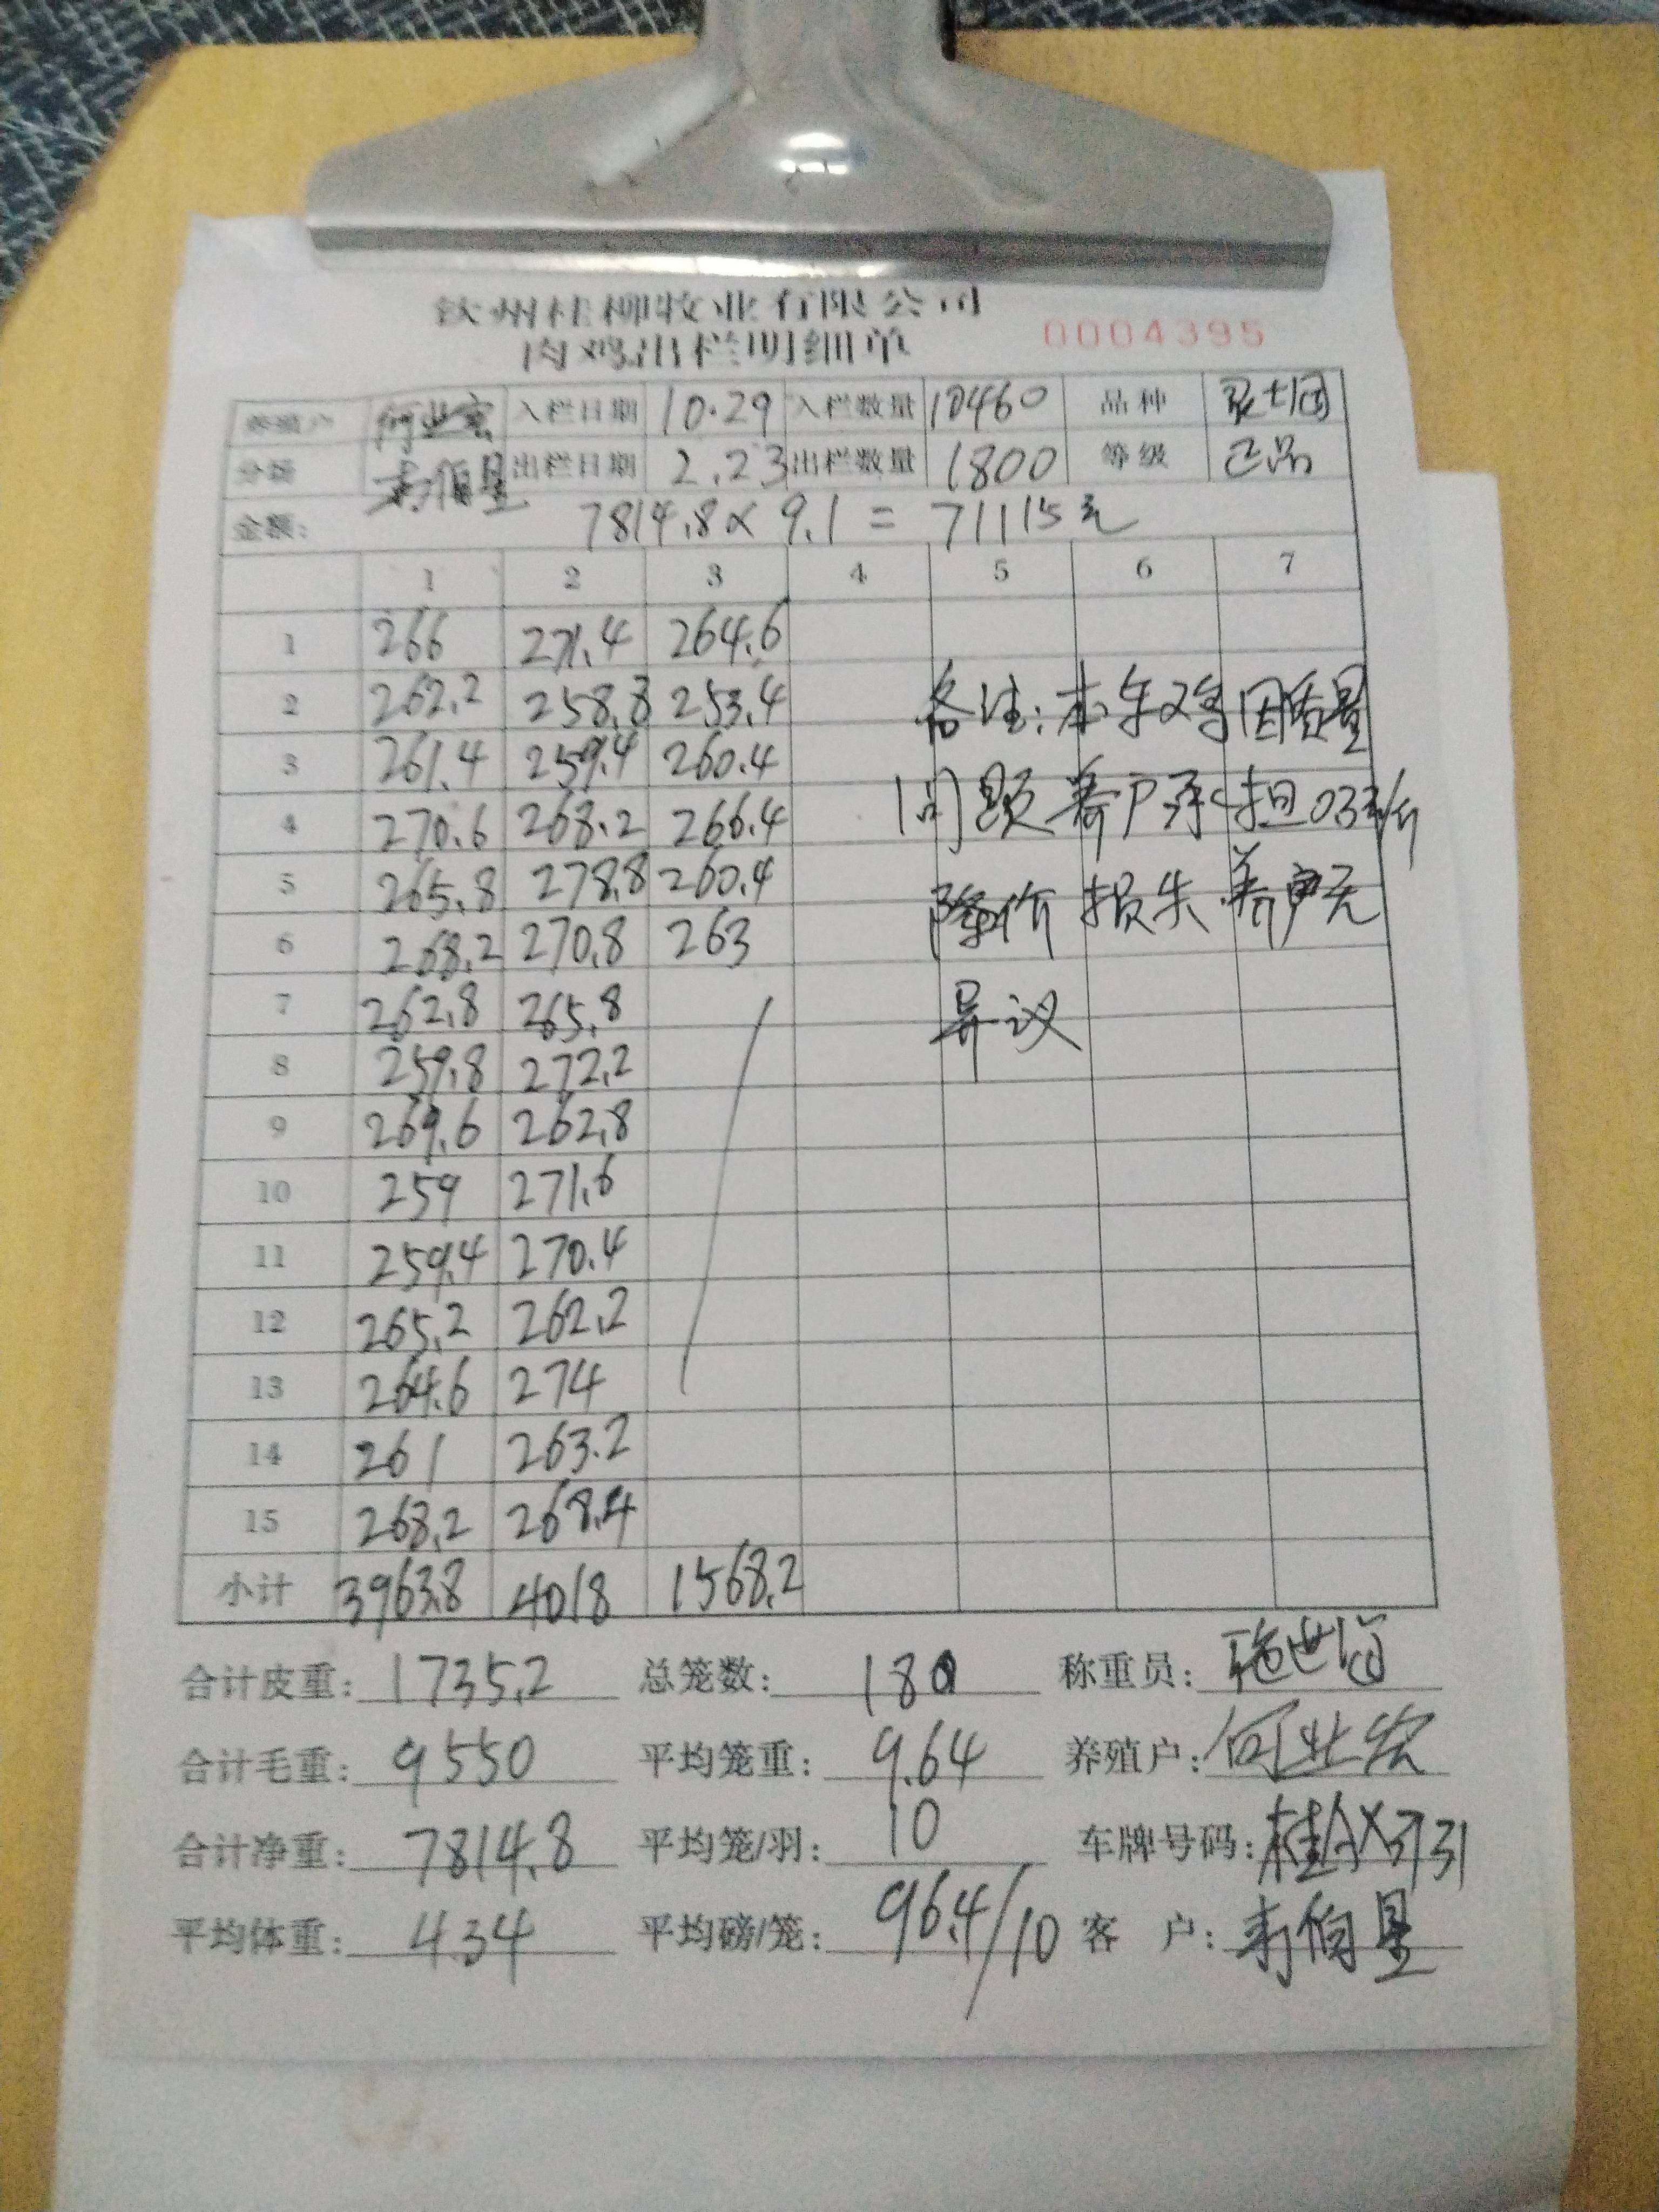 钦州桂柳牧业有限公司
肉鸡出栏明细单 0004395
养殖户 何业宏 入栏日期 10.29 入栏数量 10460 品种
分场 出栏日期 2.23 出栏数量 1800 等级 正品
金额: 7814.8 × 9.1 = 71115元
1 2 3 4 5 6 7
1 266 271.4 264.6
2 262.2 258.8 253.4 备注:本车鸡因质量
3 261.4 259.4 260.4
4 270.6 268.2 266.4 问题养户承担03元/斤
5 265.8 278.8 260.4 降价损失养户无
6 268.2 270.8 263
7 262.8 265.8 异议
8 259.8 272.2
9 269.6 262.8
10 259 271.6
11 259.4 270.4
12 265.2 262.2
13 264.6 274
14 261 263.2
15 268.2 268.4
小计 3963.8 4018 1568.2
合计皮重: 1735.2 总笼数: 180 称重员:
合计毛重: 9550 平均笼重: 9.64 养殖户: 何业宏
合计净重: 7814.8 平均笼/羽: 10 车牌号码:
平均体重: 4.34 平均磅/笼: 96.4/10 客 户: